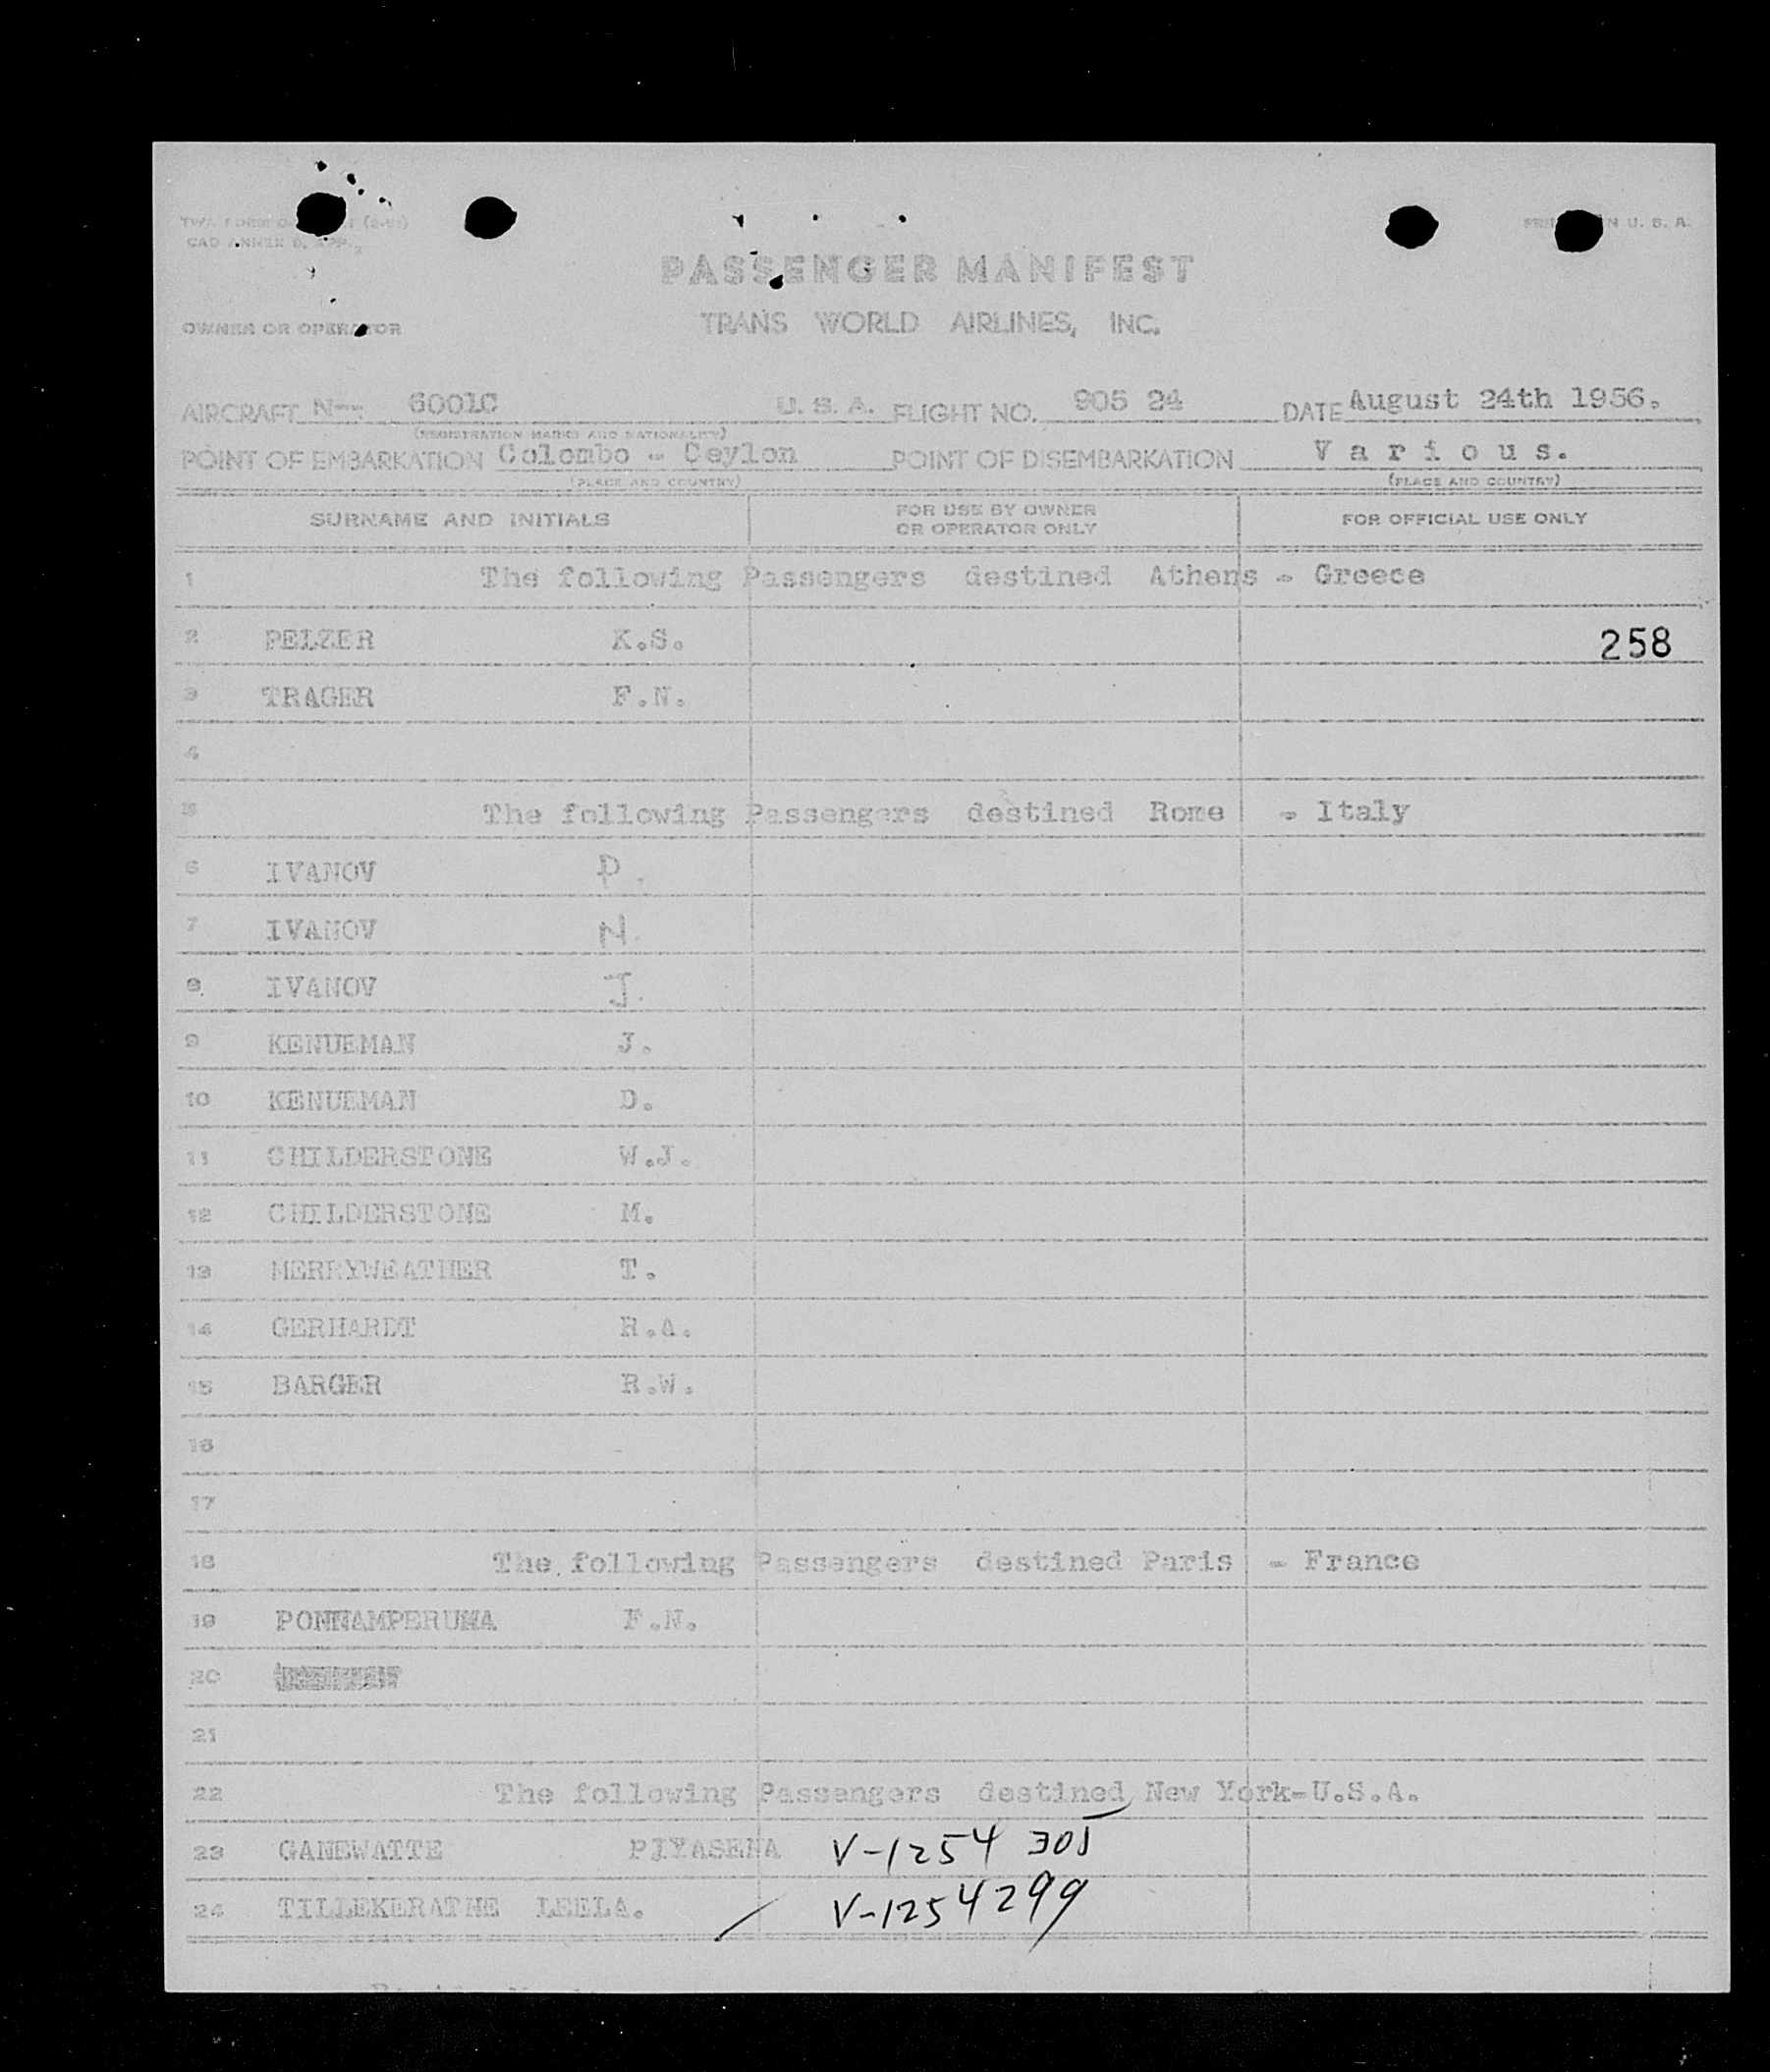 PRINTED IN U. S. A.
PASSENGER MANIFEST
OWNER OR OPERATOR TRANS WORLD AIRLINES, INC.
AIRCRAFT N--: 6001C U. S. A. FLIGHT NO. 905 24 DATE August 24th 1956.
(REGISTRATION MARKS AND NATIONALITY)
POINT OF EMBARKATION Colombo - Ceylon POINT OF DISEMBARKATION V a r i o u s.
(PLACE AND COUNTRY) (PLACE AND COUNTRY)
SURNAME AND INITIALS FOR USE BY OWNER OR OPERATOR ONLY FOR OFFICIAL USE ONLY
1 The following Passengers destined Athens - Greece
2 PELZER K.S. 258
3 TRAGER F.N.
4
5 The following Passengers destined Rome - Italy
6 IVANOV P.
7 IVANOV N.
8 IVANOV J.
9 KENUEMAN J.
10 KENUEMAN D.
11 CHILDERSTONE W.J.
12 CHILDERSTONE M.
13 MERRYWEATHER T.
14 GERHARDT R.A.
15 BARGER R.W.
16
17
18 The following Passengers destined Paris - France
19 PONNAMPERUMA F.N.
20
21
22 The following Passengers destined New York-U.S.A.
23 GANEWATTE PIYASENA V-1254 305
24 TILLEKERATNE LEELA. V-1254299